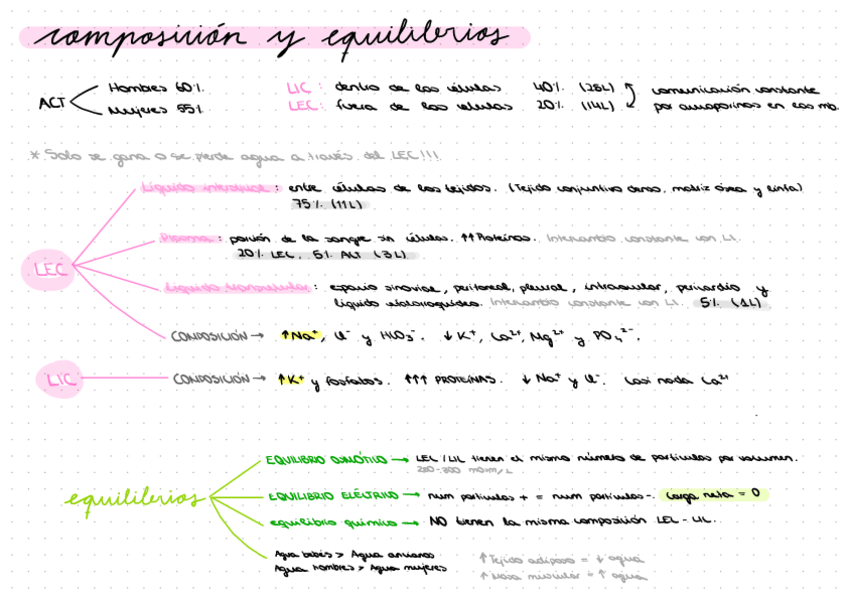 composición y equilibrios
ACT
Hombres 60%.
Mujeres 55%
LIC: dentro de las células 40%. (28L)
LEC: fuera de las células 20%. (14L)
comunicación constante
por acuaporinas en las mb.
* Solo se gana o se pierde agua a través del LEC!!!
LEC
Líquido intersticial: entre células de los tejidos. (Tejido conjuntivo denso, matriz ósea y linfa)
75%. (11L)
Plasma: porción de la sangre sin células. ↑↑ Proteínas. Intercambio constante con LI.
20%. LEC, 5%. ALT (3L)
Líquido transcelular: espacio sinovial, peritoneal, pleural, intraocular, pericardio y
líquido cefalorraquídeo. Intercambio constante con LI. 5%. (1L)
COMPOSICIÓN → ↑Na⁺, Cl⁻ y HCO₃⁻. ↓K⁺, Ca²⁺, Mg²⁺ y PO₄²⁻.
LIC
COMPOSICIÓN → ↑K⁺ y fosfatos. ↑↑↑ PROTEÍNAS. ↓ Na⁺ y Cl⁻. Casi nada Ca²⁺
equilibrios
EQUILIBRIO OSMÓTICO → LEC/LIC tienen el mismo número de partículas por volumen.
280-300 mOsm/L
EQUILIBRIO ELÉCTRICO → num partículas + = num partículas-. Carga neta = 0
equilibrio químico → NO tienen la misma composición LEC - LIC.
Agua bebés > Agua ancianos
Agua hombres > Agua mujeres
↑Tejido adiposo = ↓ agua
↑ Masa muscular = ↑ agua